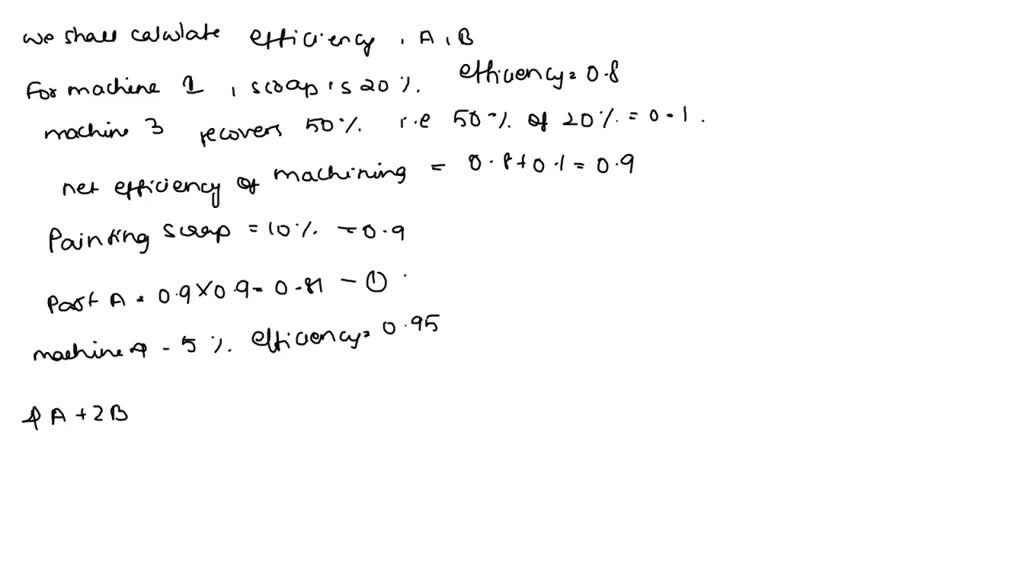 we shall calculate efficiency, A, B
For machine 1, scrap is 20%. efficiency = 0.8
machine 3 recovers 50% i.e 50% of 20% = 0.1.
net efficiency of machining = 0.8+0.1 = 0.9
Painting scrap = 10% = 0.9
Part A = 0.9×0.9 = 0.81 - ①
machine 4 - 5%. efficiency = 0.95
4A+2B